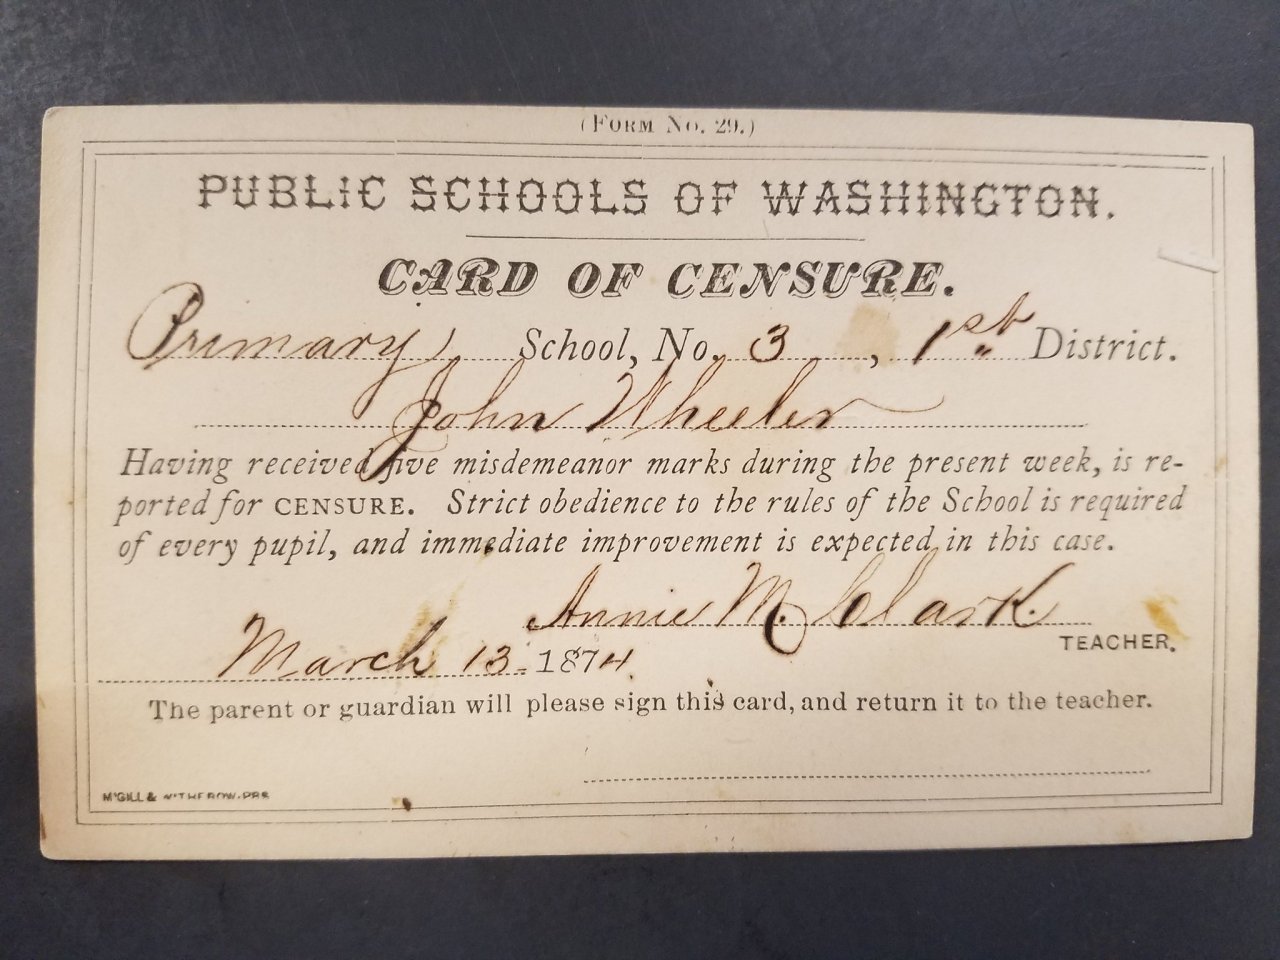 (FORM No. 29.)
PUBLIC SCHOOLS OF WASHINGTON.
CARD OF CENSURE.
Primary School, No. 3, 1st District.
John Wheeler
Having received five misdemeanor marks during the present week, is re-
ported for CENSURE. Strict obedience to the rules of the School is required
of every pupil, and immediate improvement is expected in this case.
Annie M. Clark.
TEACHER.
March 13 - 1874.
The parent or guardian will please sign this card, and return it to the teacher.
M'GILL & WITHEROW, PRS